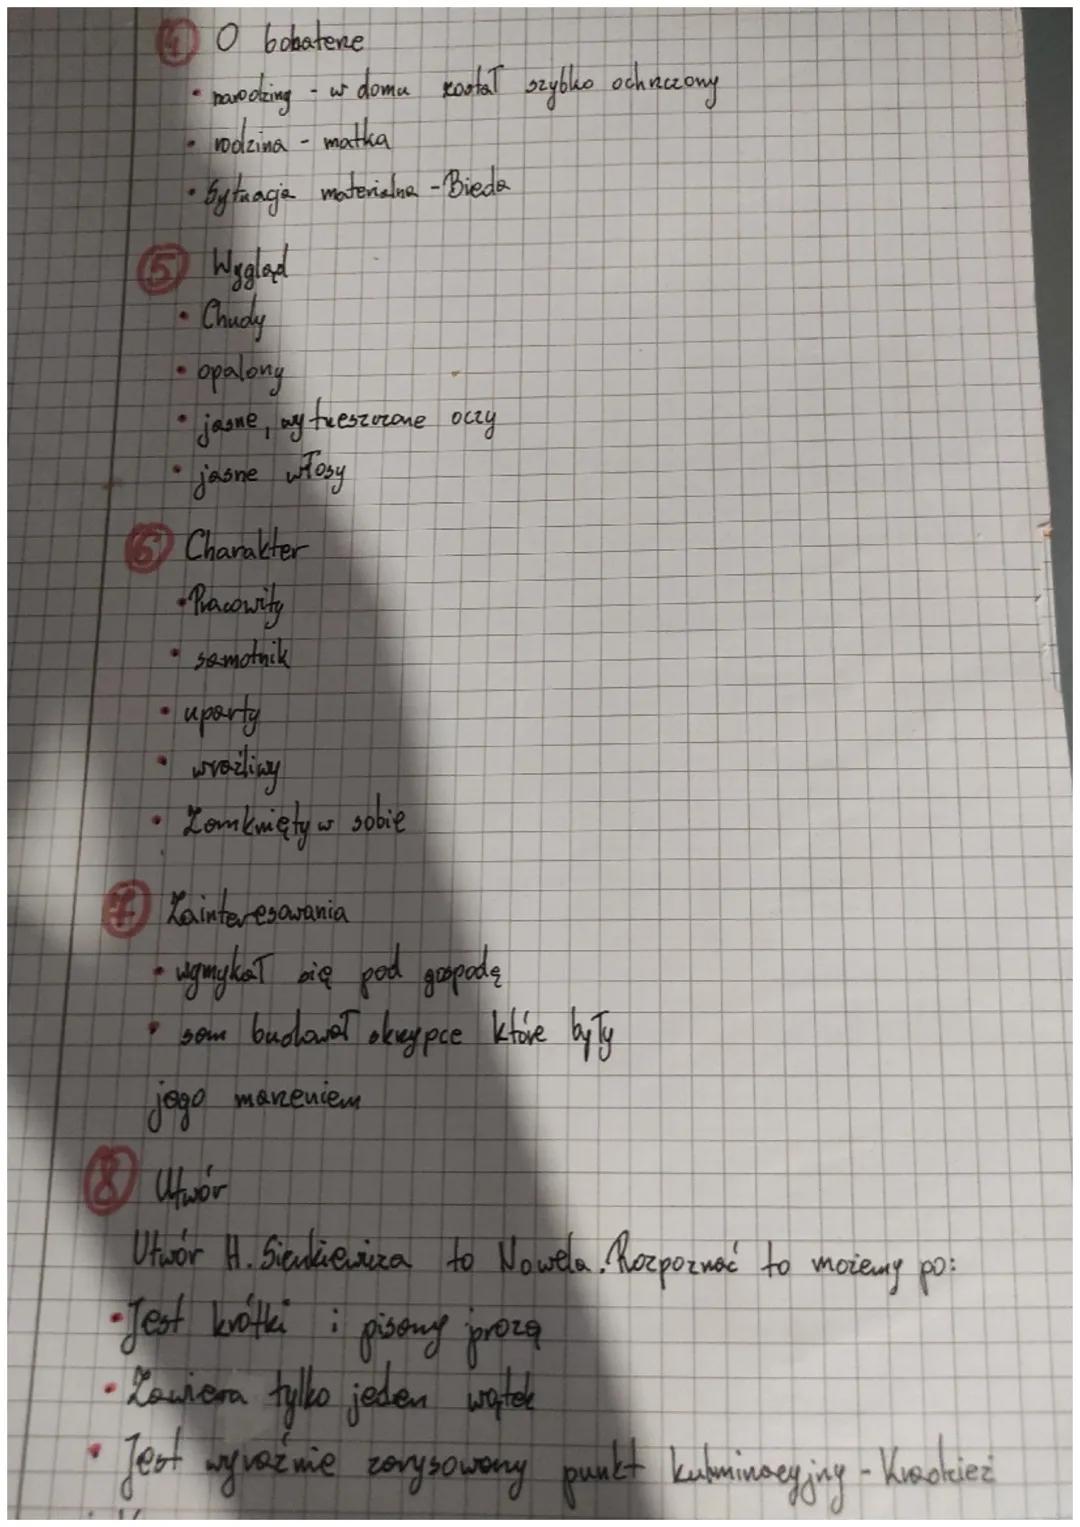 4 O bohaterze
• narodziny - w domu został szybko ochrzczony
• rodzina - matka
• Sytuacja materialna - Bieda
5 Wygląd
• Chudy
• opalony
• jasne, wytrzeszczone oczy
• jasne włosy
6 Charakter
• Pracowity
• samotnik
• uparty
• wrażliwy
• Zamknięty w sobie
7 Zainteresowania
• wymykał się pod gospodę
• sam budował skrzypce które były
jego marzeniem
8 Utwór
Utwór H. Sienkiewicza to Nowela. Rozpoznać to możemy po:
• Jest krótki i pisany prozą
• Zawiera tylko jeden wątek
• Jest wyraźnie zarysowany punkt kulminacyjny - Kradzież